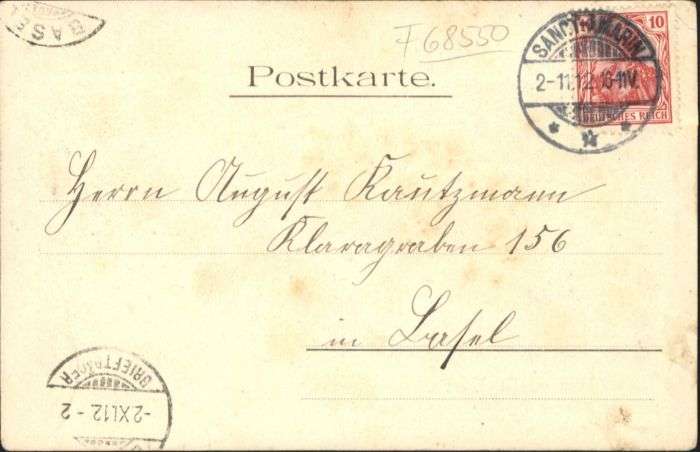 BAS
F 68550
Postkarte.
SANCT AMARIN
2-11.12. 10-11V.
10
DEUTSCHES REICH
Herrn August Kautzmann
Klaragraben 156
in Basel
BRIEFTRÄGER
-2.XI.12-2